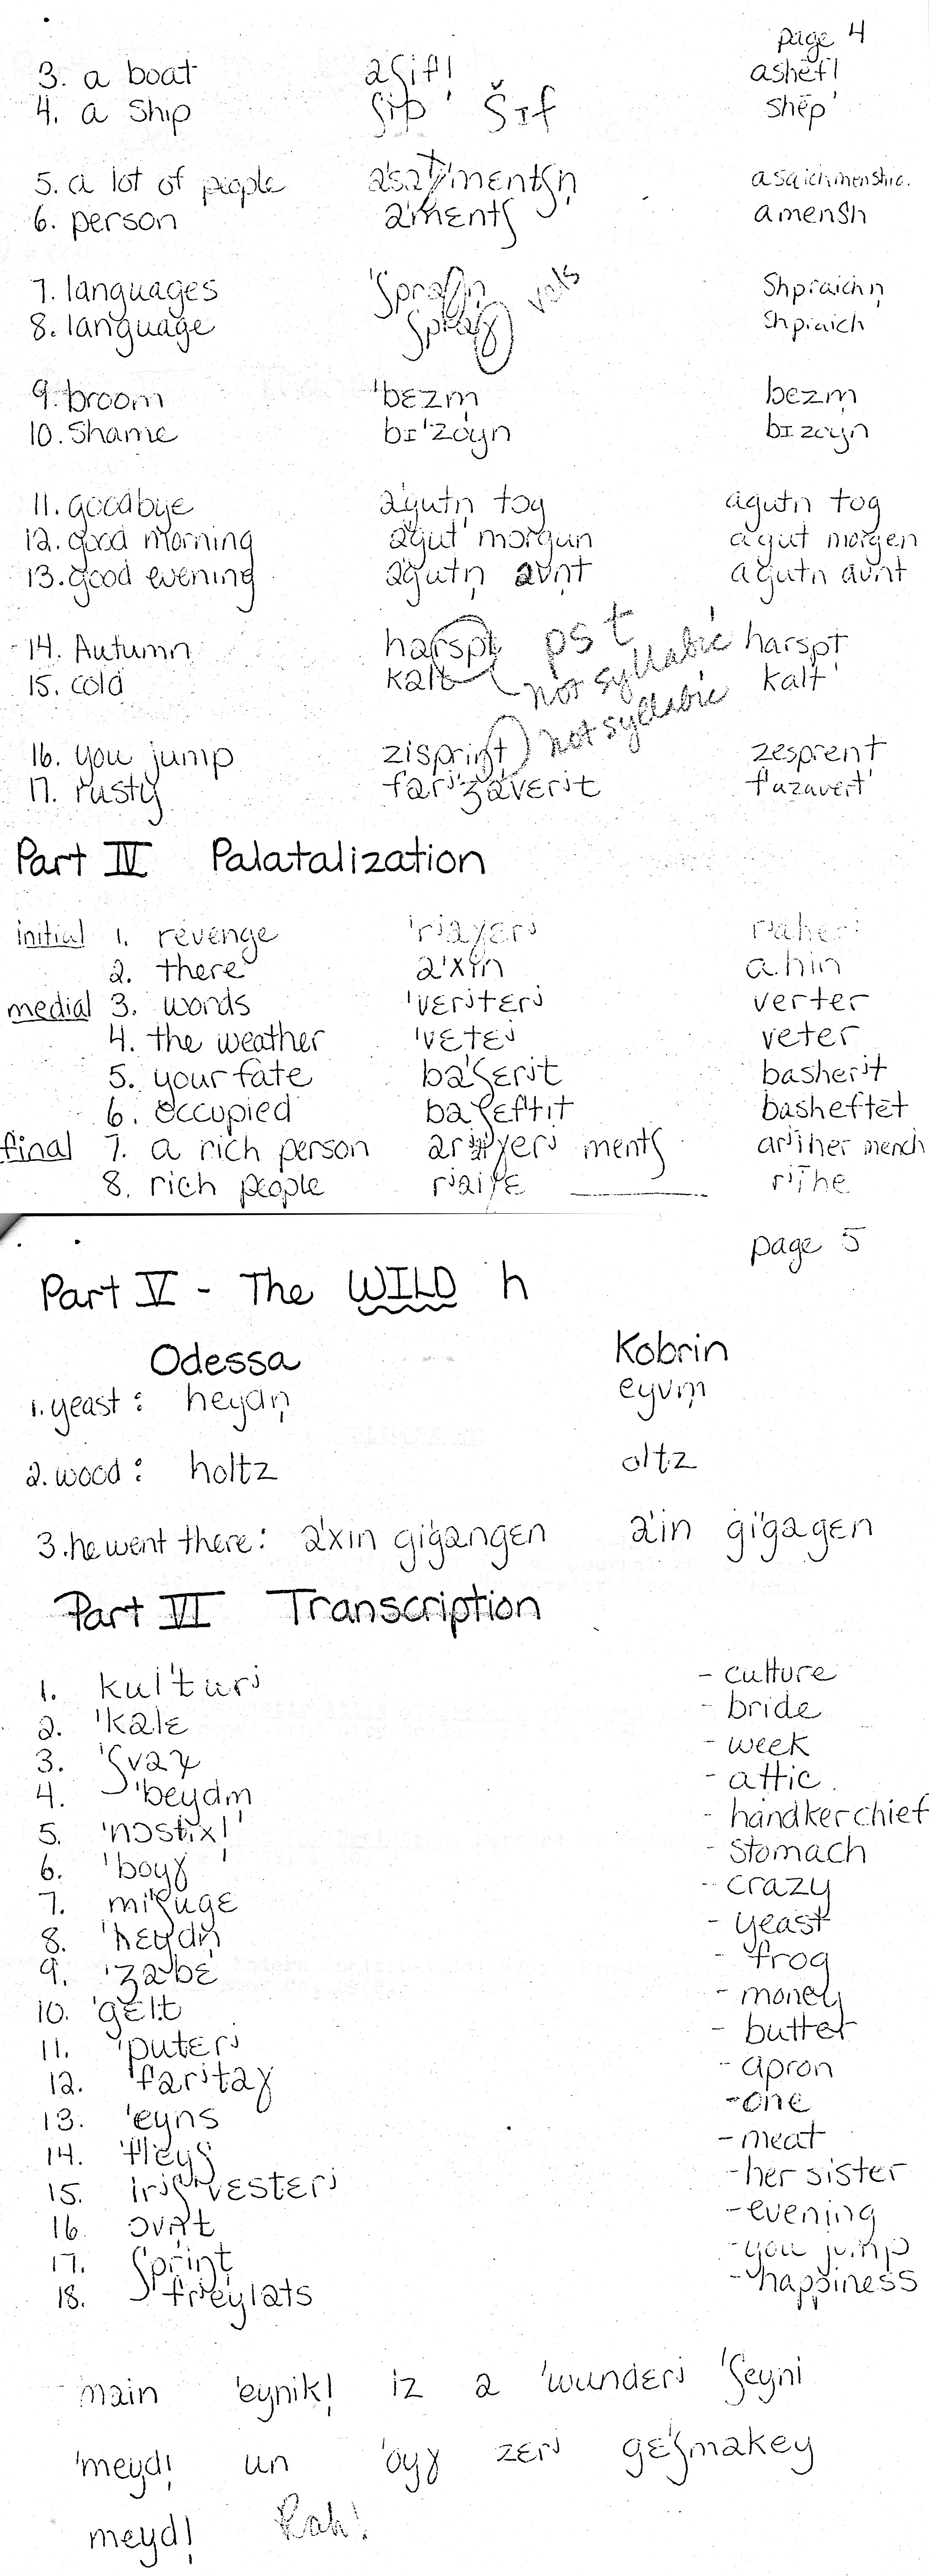 page 4
3. a boat aʃifl̩ ashefl
4. a ship ʃip Šɪf shep
5. a lot of people
6. person a'mentʃ amensh
7. languages 'ʃpraɣn̩ vels Shpraichn̩
8. language ʃpraɣ Shpraich
9. broom 'bɛzm̩ bezm̩
10. Shame bɪ'zoyn bɪzoyn
11. goodbye a'gutn̩ tog agutn tog
12. good morning a'gut morgun a gut morgen
13. good evening a'gutn̩ avn̩t a gutn avnt
14. Autumn harspt pst not syllabic harspt
15. cold kalt not syllabic kalt
16. you jump zisprint zesprent
17. rusty farʲ'ʒavɛrʲt
Part IV Palatalization
initial 1. revenge 'rʲaɣɛrʲ
2. there a'xin a.hin
medial 3. words 'vɛrʲtɛrʲ verter
4. the weather 'vɛtɛʲ veter
5. your fate ba'ʃɛrʲt basherʲt
6. occupied ba'ʃɛftit basheftet
final 7. a rich person mentʃ arʲiher mench
8. rich people rʲihe
page 5
Part V - The WILD h
Odessa Kobrin
1. yeast : heydn̩ eyvm̩
2. wood : holtz oltz
3. he went there : a'xin gi'gangɛn a'in gi'gagɛn
Part VI Transcription
1. kul'turʲ - culture
2. 'kalɛ - bride
3. 'ʃvaɣ - week
4. 'beydm - attic
5. 'nɔstixl̩ - handkerchief
6. 'boyɣ - stomach
7. mi'ʃugɛ - crazy
8. 'hɛydn̩ - yeast
9. 'ʒabɛ - frog
10. 'gɛlt - money
11. 'putɛrʲ - butter
12. 'farʲtaɣ - apron
13. 'eyns - one
14. 'fleyʃ - meat
15. irʲ ʃ'vɛstɛrʲ - her sister
16. ɔvn̩t - evening
17. ʃprint - you jump
18. 'freylats - happiness
main 'eynikl̩ iz a 'wundɛrʲ 'ʃeyni
'meydl̩ un 'oyɣ zɛrʲ gɛ'ʃmakey
meydl̩ Rah!